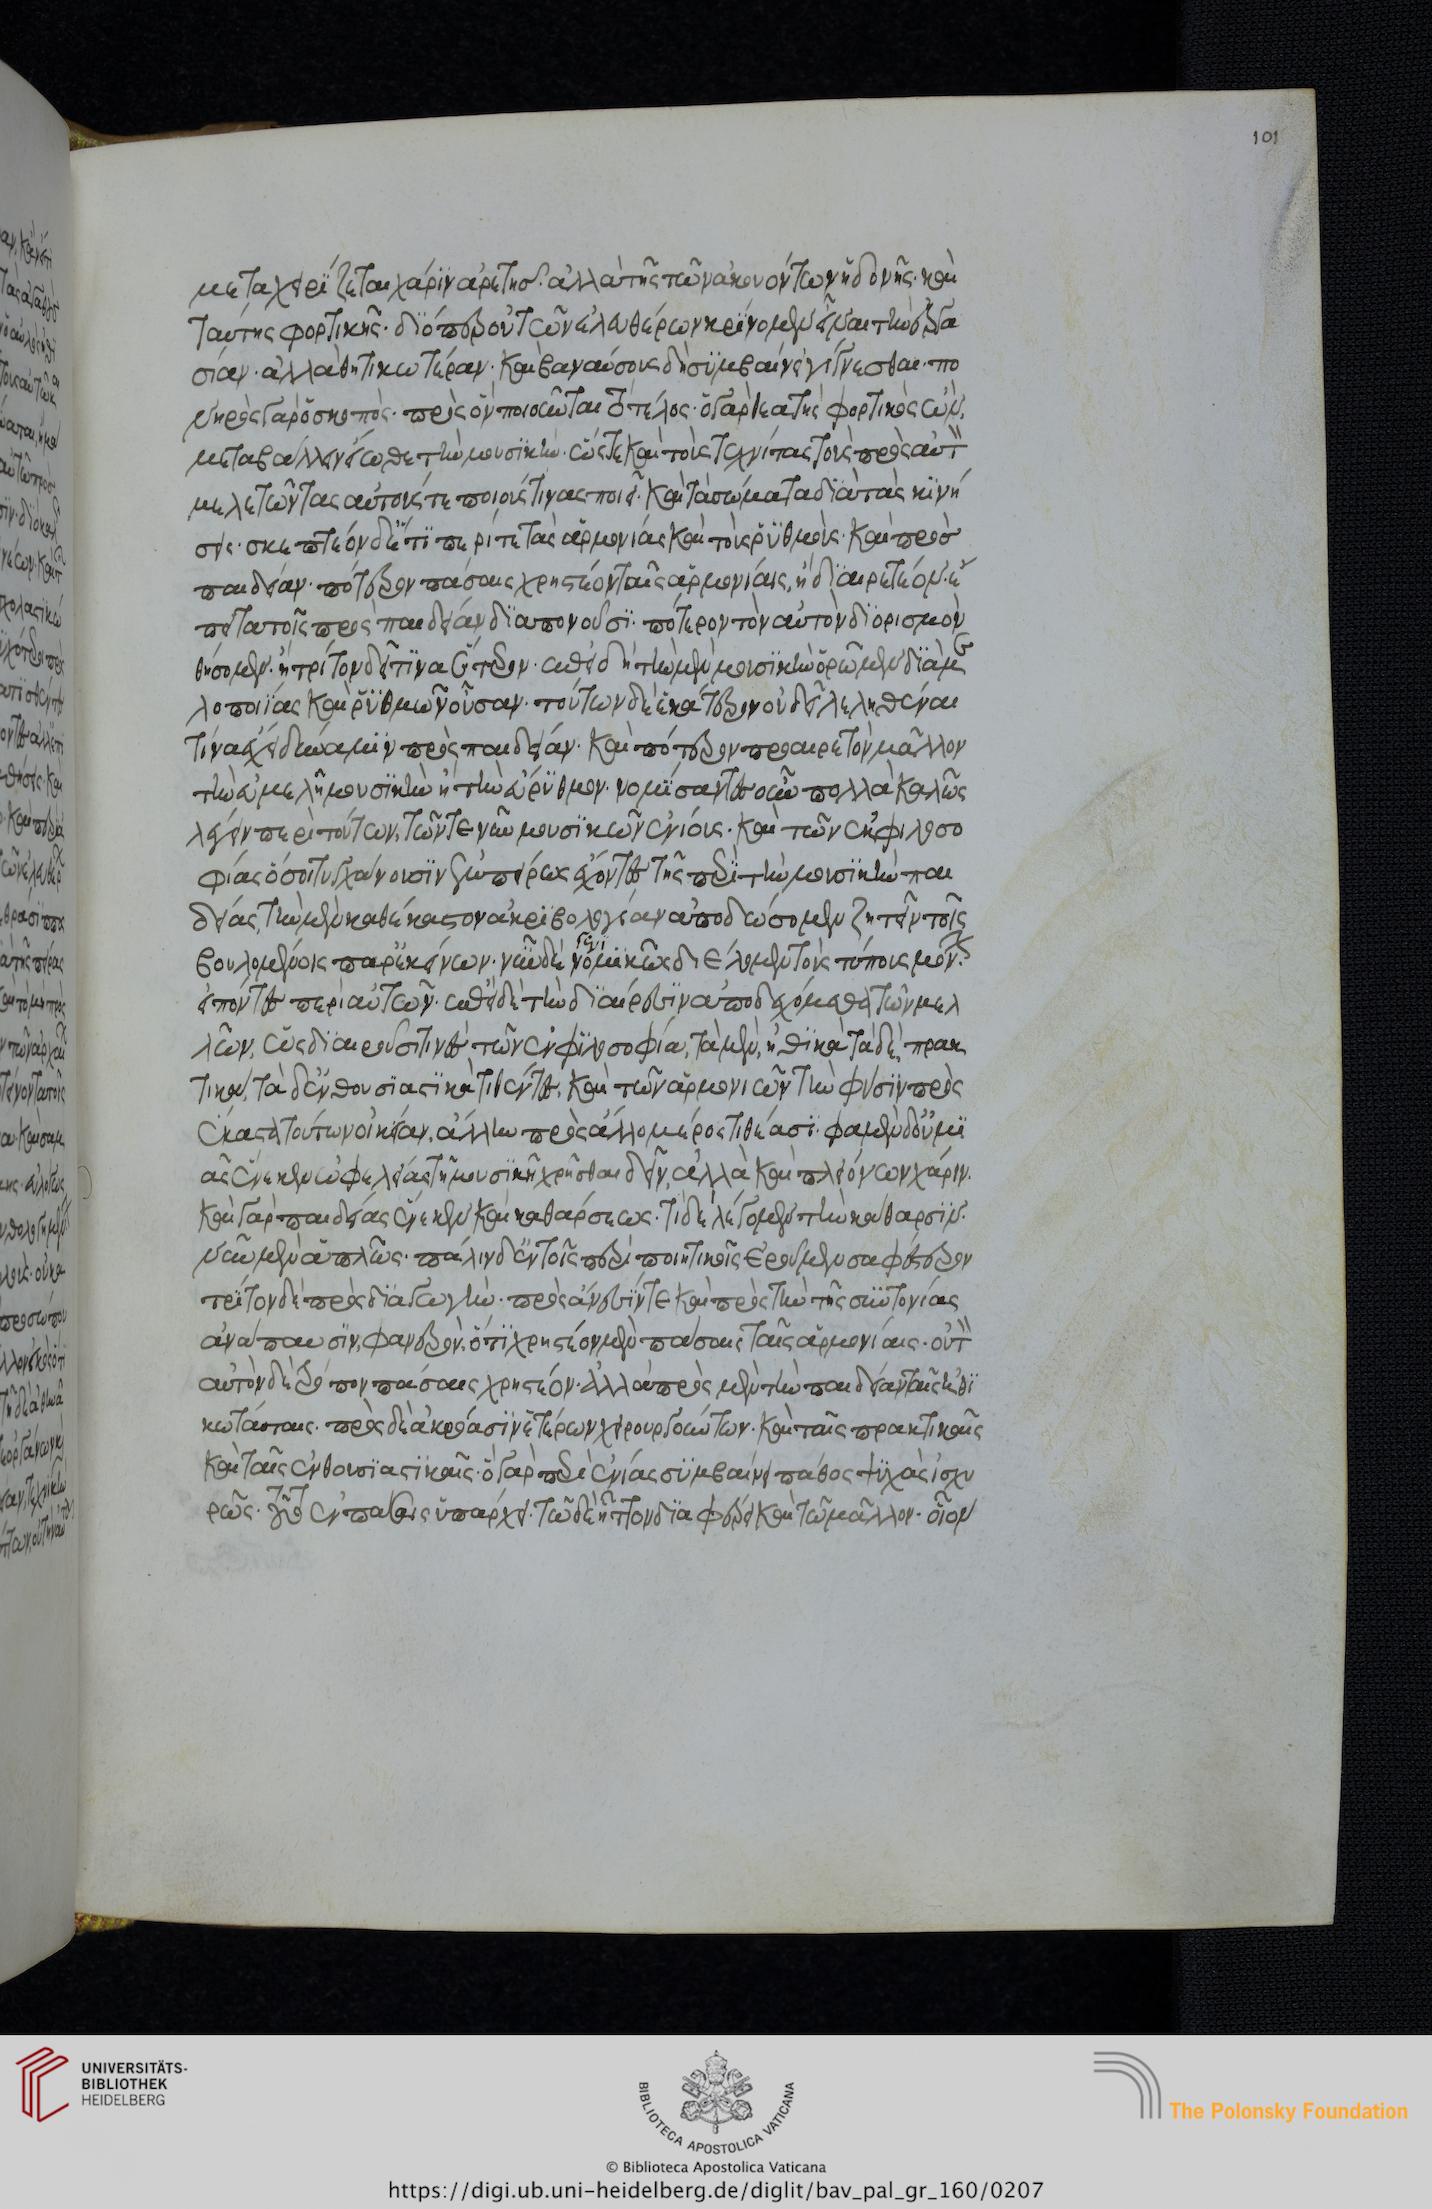 101
μεταχειρίζεται χάριν ἀρετῆς. ἀλλὰ τῆς τῶν ἀκουόντων ἡδονῆς. καὶ
ταύτης φορτικῆς. διόπερ οὐ τῶν ἐλευθέρων κρίνομεν εἶναι τὴν ἐργα
σίαν. ἀλλὰ θητικωτέραν. καὶ βαναύσους δὴ συμβαίνει γίγνεσθαι. πο
νηρὸς γὰρ ὁ σκοπὸς. πρὸς ὃν ποιοῦνται τὸ τέλος. ὁ γὰρ θεατὴς φορτικὸς ὢν,
μεταβάλλειν εἴωθε τὴν μουσικήν. ὥστε καὶ τοὺς τεχνίτας τοὺς πρὸς αὐτὸν
μελετῶντας αὐτούς τε ποιούς τινας ποιεῖ. καὶ τὰ σώματα διὰ τὰς κινή
σεις. σκεπτέον δ' ἔτι περί τε τὰς ἁρμονίας καὶ τοὺς ῥυθμοὺς. καὶ πρὸς
παιδείαν. πότερον πάσαις χρηστέον ταῖς ἁρμονίαις, ἢ διαιρετέον. ἔ
πειτα τοῖς πρὸς παιδείαν διαπονοῦσι. πότερον τὸν αὐτὸν διορισμὸν
θήσομεν. ἢ τρίτον δεῖ τινα ἕτερον. ἐπειδὴ τὴν μὲν μουσικὴν ὁρῶμεν διὰ με
λοποιίας καὶ ῥυθμῶν οὖσαν. τούτων δὲ ἑκάτερον οὐ δεῖ λεληθέναι
τίνα ἔχει δύναμιν πρὸς παιδείαν. καὶ πότερον προαιρετέον μᾶλλον
τὴν εὐμελῆ μουσικὴν ἢ τὴν εὔρυθμον. νομίσαντες οὖν πολλὰ καλῶς
λέγειν περὶ τούτων, τῶν τε νῦν μουσικῶν ἐνίους. καὶ τῶν ἐκ φιλοσο
φίας ὅσοι τυγχάνουσιν ἐμπείρως ἔχοντες τῆς περὶ τὴν μουσικὴν παι
δείας, τὴν μὲν καθ' ἕκαστον ἀκριβολογίαν ἀποδώσομεν ζητεῖν τοῖς
βουλομένοις παρ' ἐκείνων. νῦν δὲ νομικῶς διέλωμεν τοὺς τύπους μόνον
εἰπόντες περὶ αὐτῶν. ἐπεὶ δὲ τὴν διαίρεσιν ἀποδεχόμεθα τῶν μελ
λῶν, ὡς διαιροῦσί τινες τῶν ἐν φιλοσοφία, τὰ μὲν, ἠθικὰ τὰ δὲ, πρακ
τικὰ, τὰ δ' ἐνθουσιαστικὰ τιθέντες, καὶ τῶν ἁρμονιῶν τὴν φύσιν πρὸς
ἕκαστα τούτων οἰκείαν, ἄλλην πρὸς ἄλλο μέρος τιθέασι. φαμὲν δ' οὐ μι
ᾶς ἕνεκεν ὠφελείας τῇ μουσικῇ χρῆσθαι δεῖν, ἀλλὰ καὶ πλειόνων χάριν.
καὶ γὰρ παιδείας ἕνεκεν καὶ καθάρσεως. τί δὲ λέγομεν τὴν κάθαρσιν.
νῦν μὲν ἁπλῶς. πάλιν δ' ἐν τοῖς περὶ ποιητικῆς ἐροῦμεν σαφέστερον
τρίτον δὲ πρὸς διαγωγήν. πρὸς ἄνεσίν τε καὶ πρὸς τὴν τῆς συντονίας
ἀνάπαυσιν, φανερὸν, ὅτι χρηστέον μὲν πάσαις ταῖς ἁρμονίαις. οὐ τὸν
αὐτὸν δὲ τρόπον πάσαις χρηστέον. ἀλλὰ πρὸς μὲν τὴν παιδείαν ταῖς ἠθι
κωτάταις. πρὸς δὲ ἀκρόασιν ἑτέρων χειρουργούντων. καὶ ταῖς πρακτικαῖς
καὶ ταῖς ἐνθουσιαστικαῖς. ὃ γὰρ περὶ ἐνίας συμβαίνει πάθος ψυχὰς ἰσχυ
ρῶς. τοῦτο ἐν πάσαις ὑπάρχει. τῶ δὲ ἧττον διαφέρει καὶ τῶ μᾶλλον. οἷον
UNIVERSITÄTS-
BIBLIOTHEK
HEIDELBERG
BIBLIOTECA APOSTOLICA VATICANA
The Polonsky Foundation
© Biblioteca Apostolica Vaticana
https://digi.ub.uni-heidelberg.de/diglit/bav_pal_gr_160/0207